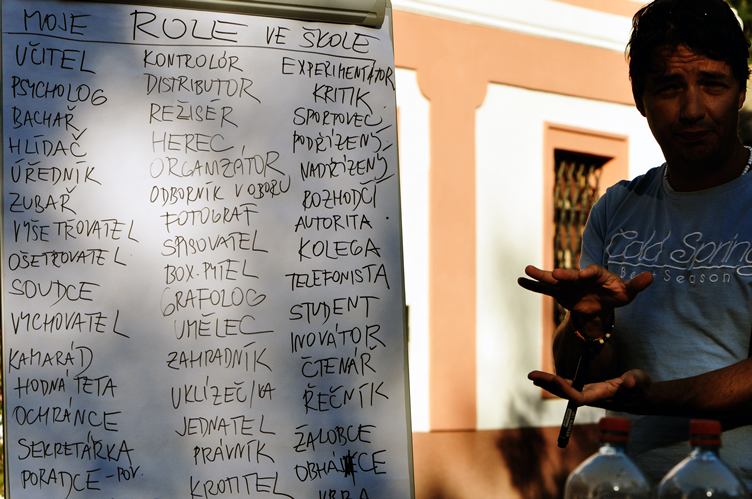 MOJE ROLE VE ŠKOLE
UČITEL
PSYCHOLOG
BACHAŘ
HLÍDAČ
ÚŘEDNÍK
ZUBAŘ
VYŠETŘOVATEL
OŠETŘOVATEL
SOUDCE
VYCHOVATEL
KAMARÁD
HODNÁ TETA
OCHRÁNCE
SEKRETÁŘKA
PORADCE-POV.
KONTROLÓR
DISTRIBUTOR
REŽISÉR
HEREC
ORGANIZÁTOR
ODBORNÍK V OBORU
FOTOGRAF
SPISOVATEL
BOX. PYTEL
GRAFOLOG
UMĚLEC
ZAHRADNÍK
UKLÍZEČ/KA
JEDNATEL
PRÁVNÍK
KROTITEL
EXPERIMENTÁTOR
KRITIK
SPORTOVEC
PODŘÍZENÝ
NADŘÍZENÝ
ROZHODČÍ
AUTORITA
KOLEGA
TELEFONISTA
STUDENT
INOVÁTOR
ČTENÁŘ
ŘEČNÍK
ŽALOBCE
OBHÁJCE
Cold Spring
Best Season